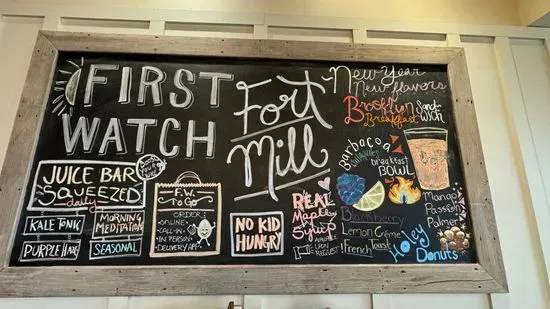 FIRST
WATCH
Fort
Mill
New Year
New flavors
Brooklyn
Breakfast
Sandwich
Barbacoa
breakfast
BOWL
JUICE BAR
SQUEEZED
daily
KALE TONIC
MORNING
MEDITATION
PURPLE HAZE
SEASONAL
F.W.
To Go
ORDER:
• ONLINE
• CALL-IN
• IN PERSON
• DELIVERY APP
NO KID
HUNGRY
REAL
Maple
Syrup
UPON
REQUEST
Blackberry
Lemon Crème
French Toast
Mango
Passion
Palmer
Holey
Donuts